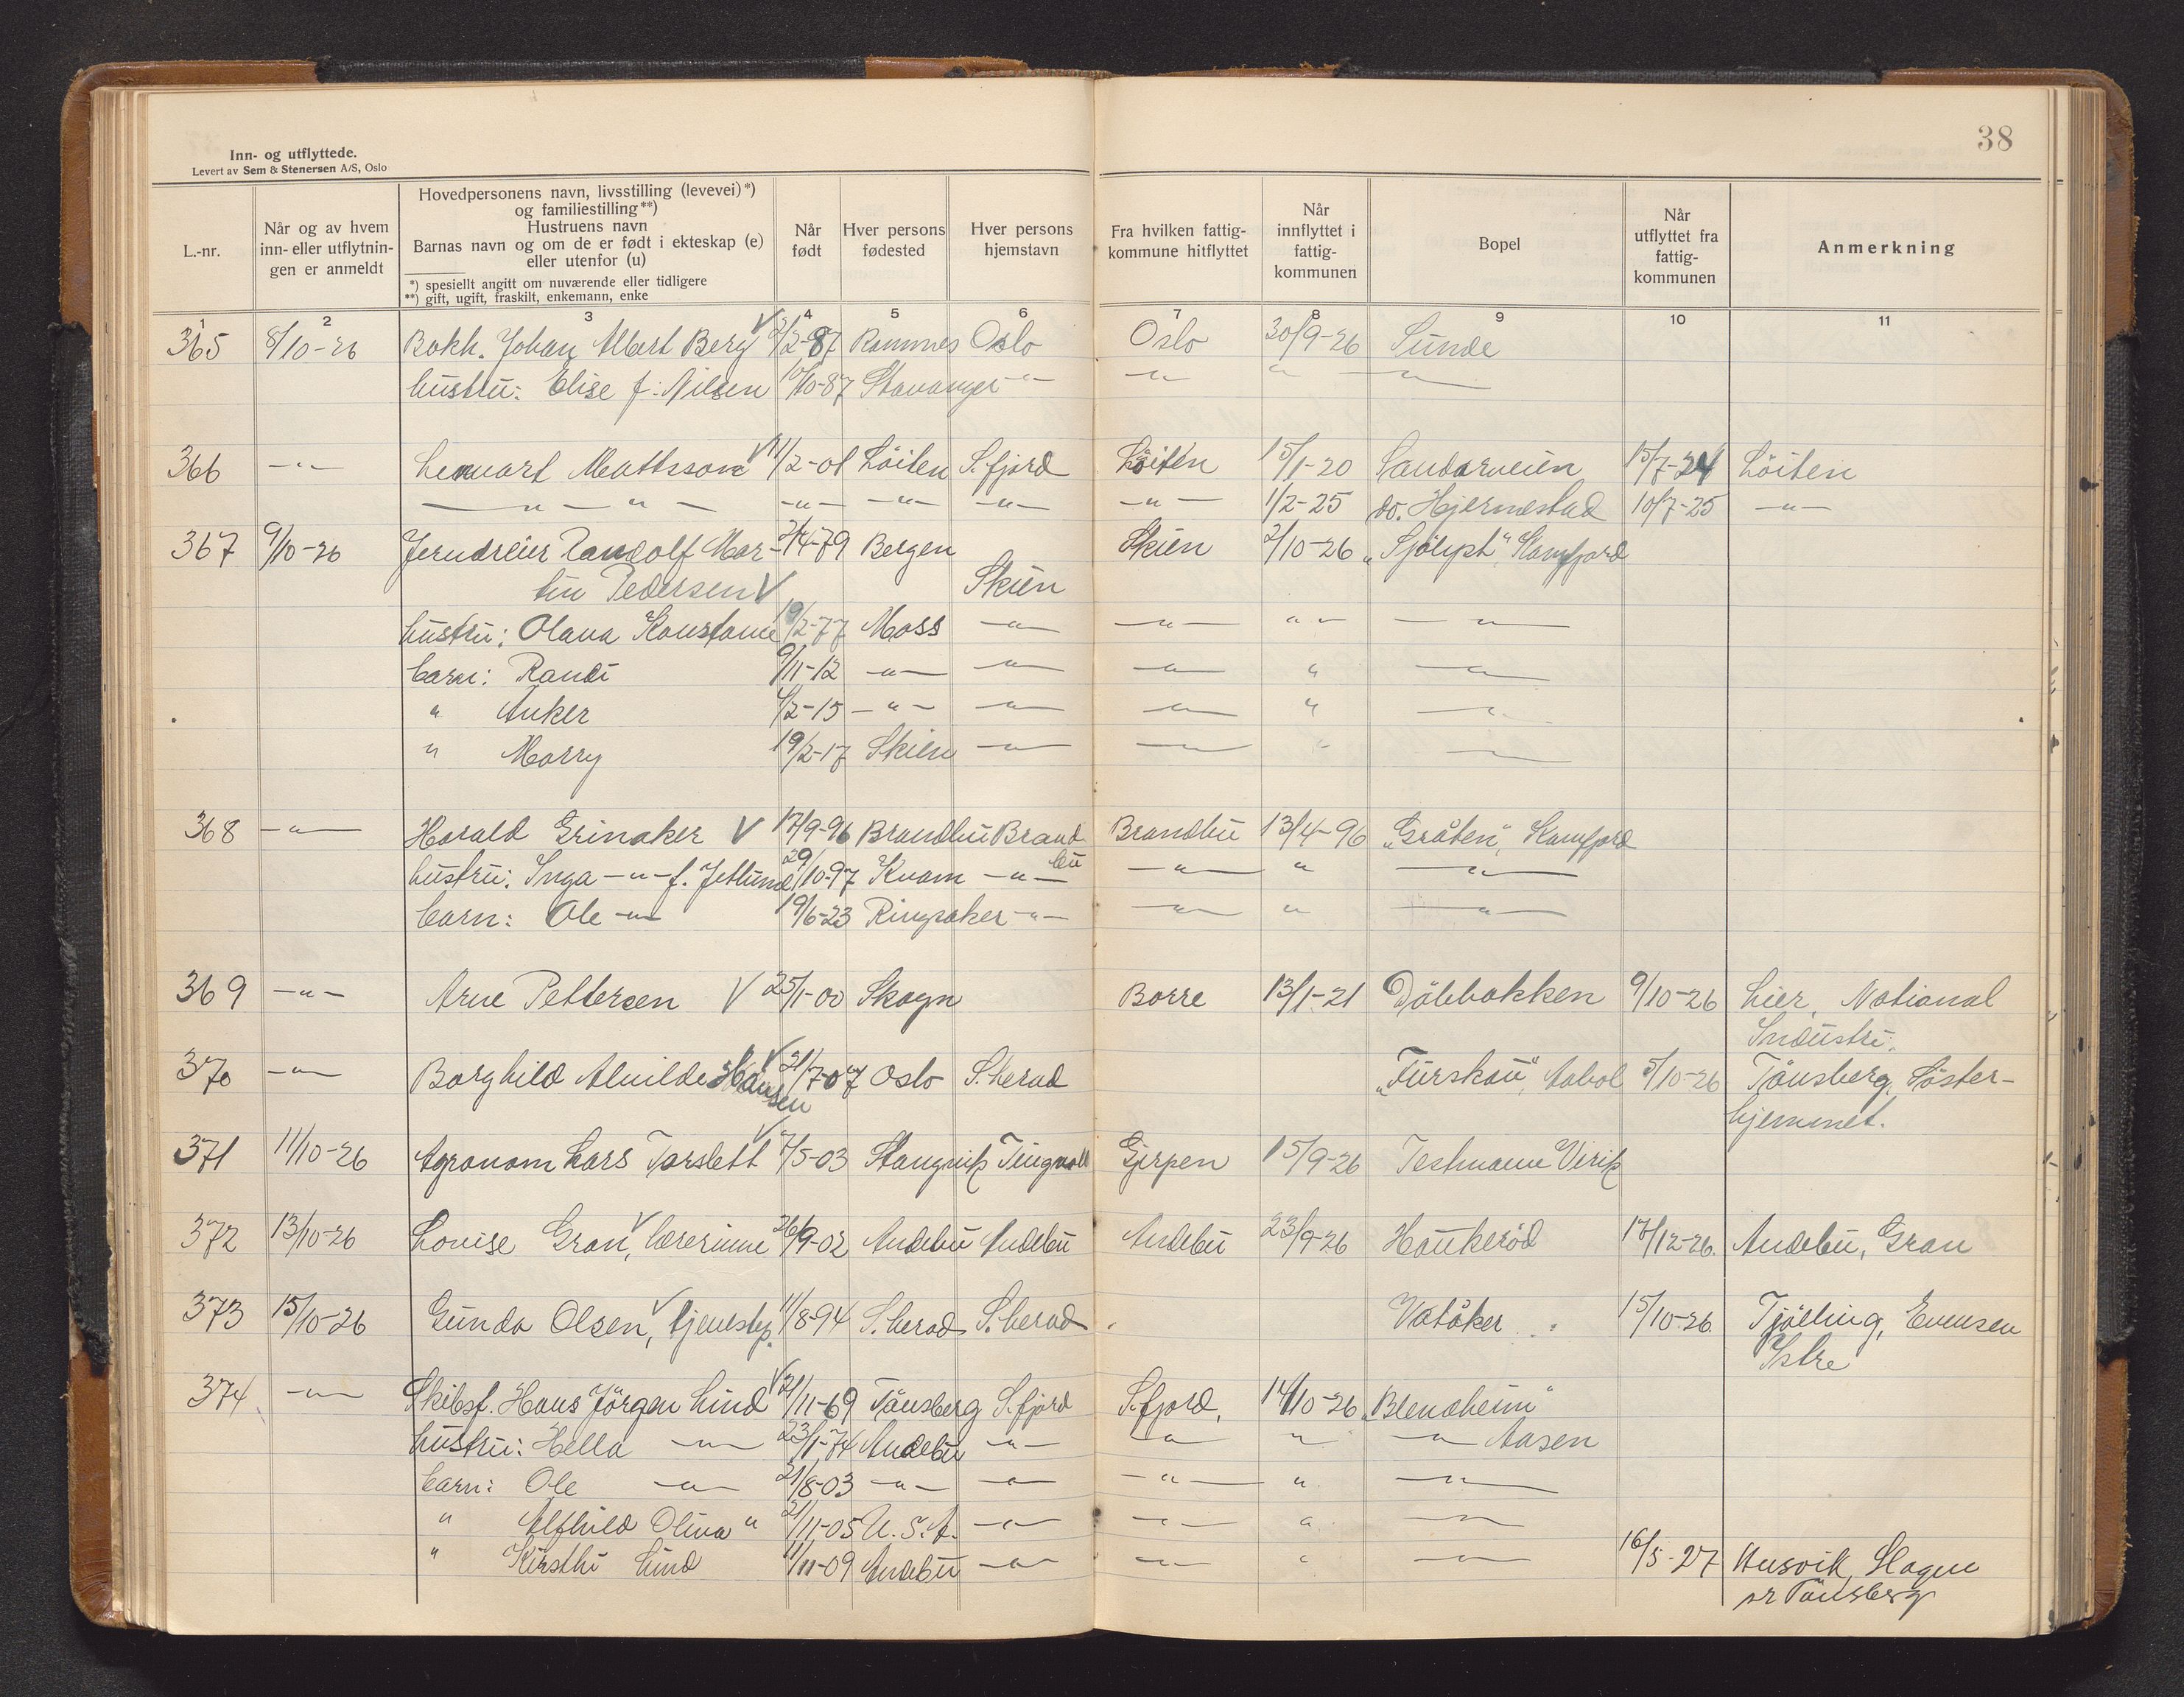 38
Inn- og utflyttede.
Levert av Sem & Stenersen A/S, Oslo
L.-nr.
Når og av hvem inn- eller utflytnin-gen er anmeldt
Hovedpersonens navn, livsstilling (levevei)*)
og familiestilling**)
Hustruens navn
Barnas navn og om de er født i ekteskap (e)
eller utenfor (u)
*) spesiellt angitt om nuværende eller tidligere
**) gift, ugift, fraskilt, enkemann, enke
Når født
Hver persons fødested
Hver persons hjemstavn
Fra hvilken fattig-kommune hitflyttet
Når innflyttet i fattig-kommunen
Bopel
Når utflyttet fra fattig-kommunen
Anmerkning
1 2 3 4 5 6 7 8 9 10 11
365 8/10-26 Bokh. Johan Albert Berg √ 2/2-87 Ramnes Oslo Oslo 30/9-26 Sunde
hustru: Elise f. Nilsen 10/10-87 Stavanger -"- -"- " -"-
366 -"- Lennart Mattsson √ 11/2-01 Löiten S.fjord Löiten 15/1-20 Sandarveien 15/7-24 Löiten
-"- -"- -"- -"- -"- -"- 1/2-25 do. Hjermestad 10/7-25 -"-
367 9/10-26 Jerndreier Randolf Mar- 2/4-79 Bergen Skien 2/10-26 „Sjölyst" Kamfjord
tin Pedersen √ Skien
hustru: Olava Konstanse 19/2-77 Moss -"- -"- " -"-
barn: Randi 9/11-12 -"- -"- -"- " -"-
" Anker 4/2-15 -"- -"- -"- " -"-
" Marry 19/2-17 Skien -"- -"- " -"-
368 -"- Harald Grinaker √ 17/9-96 Brandbu Brand- Brandbu 13/4-96 „Gråten", Kamfjord
bu
hustru: Inga -"- f. Jetlund 29/10-97 Kvam -"- -"- " -"-
barn: Ole -"- 19/6-23 Ringsaker -"- -"- " -"-
369 -"- Arne Pettersen √ 25/1-00 Skogn Borre 13/1-21 Döbbakken 9/10-26 Lier, National
Industri.
370 -"- Borghild Alvilde Hansen √ 21/7-07 Oslo S.herad „Furskau", Aabol 5/10-26 Tönsberg, Söster-
hjemmet.
371 11/10-26 Agronom Lars Torslett √ 7/5-03 Stangvik Tingvoll Gjerpen 15/9-26 Testmann Virik
372 13/10-26 Lovise Gran √, lærerinne 26/9-02 Andebu Andebu Andebu 23/9-26 Haukeröd 17/12-26. Andebu, Gran
373 15/10-26 Gunda Olsen √, tjenestep. 11/8-94 S.herad S.herad Vatåker 15/10-26. Tjölling, Evensen
Istre
374 -"- Skibsf. Hans Jörgen Lind √ 21/11-69 Tönsberg S.fjord S.fjord, 14/10-26 „Blendheim"
hustru: Hella -"- 23/1-74 Andebu -"- -"- " -"- Aasen
barn: Ole -"- 21/8-03 -"- -"- -"- " -"-
" Alfhild Oliva " 21/11-05 U.S.A. -"- -"- " -"-
" Kirsthi Lind 11/11-09 Andebu -"- -"- " -"- 16/5-27 Husvik, Slagen
pr Tönsberg